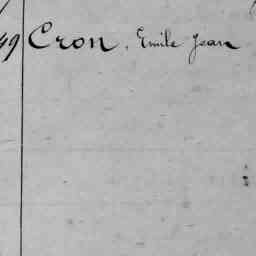 49 Cron, Emile Jean